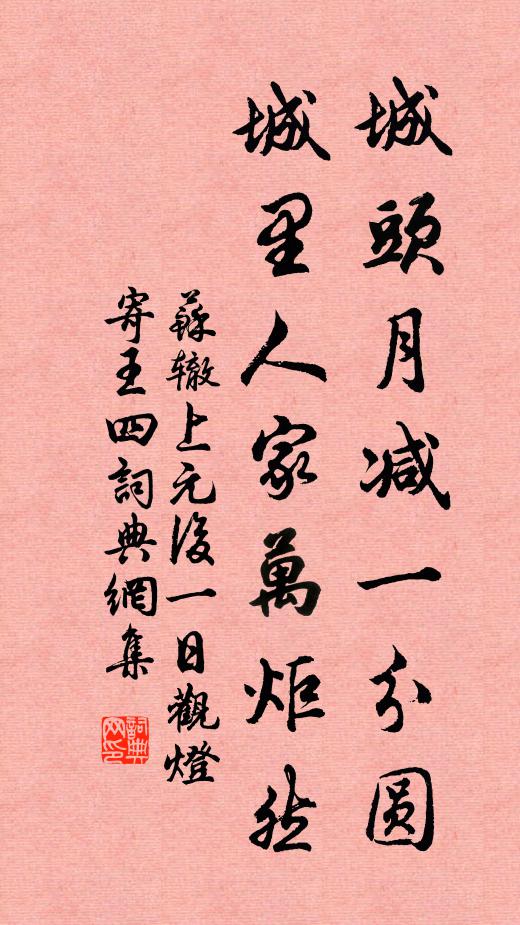 城頭月减一分圆
城里人家萬炬然
蘇辙上元後一日觀燈
寄王四詞典網集
詞典网印